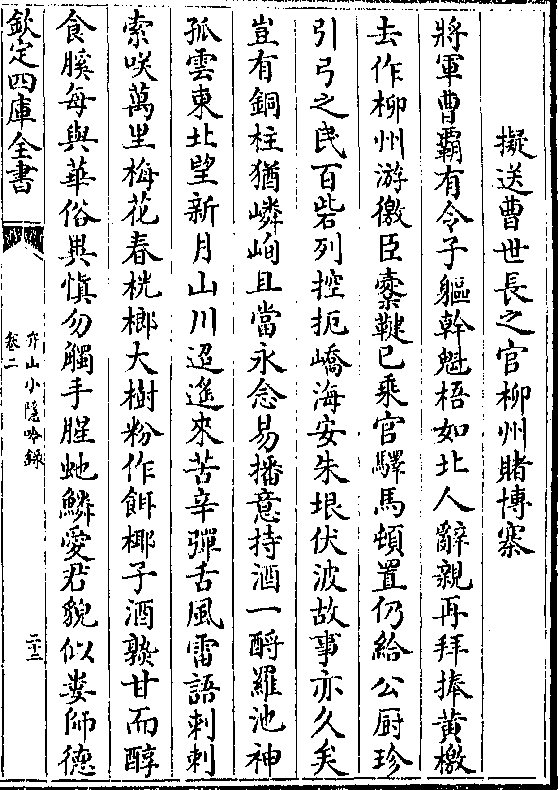 擬送曹世長之官柳州賭博寨
將軍曹霸有令子軀幹魁梧如北人辭親再拜捧黃檄
去作柳州游徼臣櫜鞬已乘官驛馬頓置仍給公厨珍
引弓之民百砦列控扼嶠海安朱垠伏波故事亦久矣
豈有銅柱猶嶙峋且當永念易播意持酒一酹羅池神
孤雲東北望新月山川迢遥來苦辛彈舌風雷語刺刺
索咲萬里梅花春桄榔大樹粉作餌椰子酒熟甘而醇
食膎每與華俗異慎勿觸手腥虵鱗愛君貌似婁師德
欽定四庫全書
弁山小隱吟錄
卷二
二十三